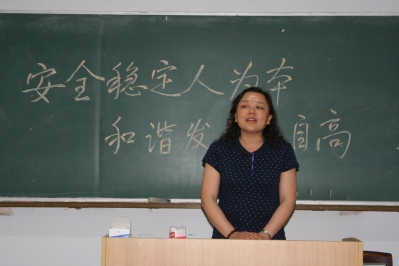 安全稳定人为本
和谐发 自高